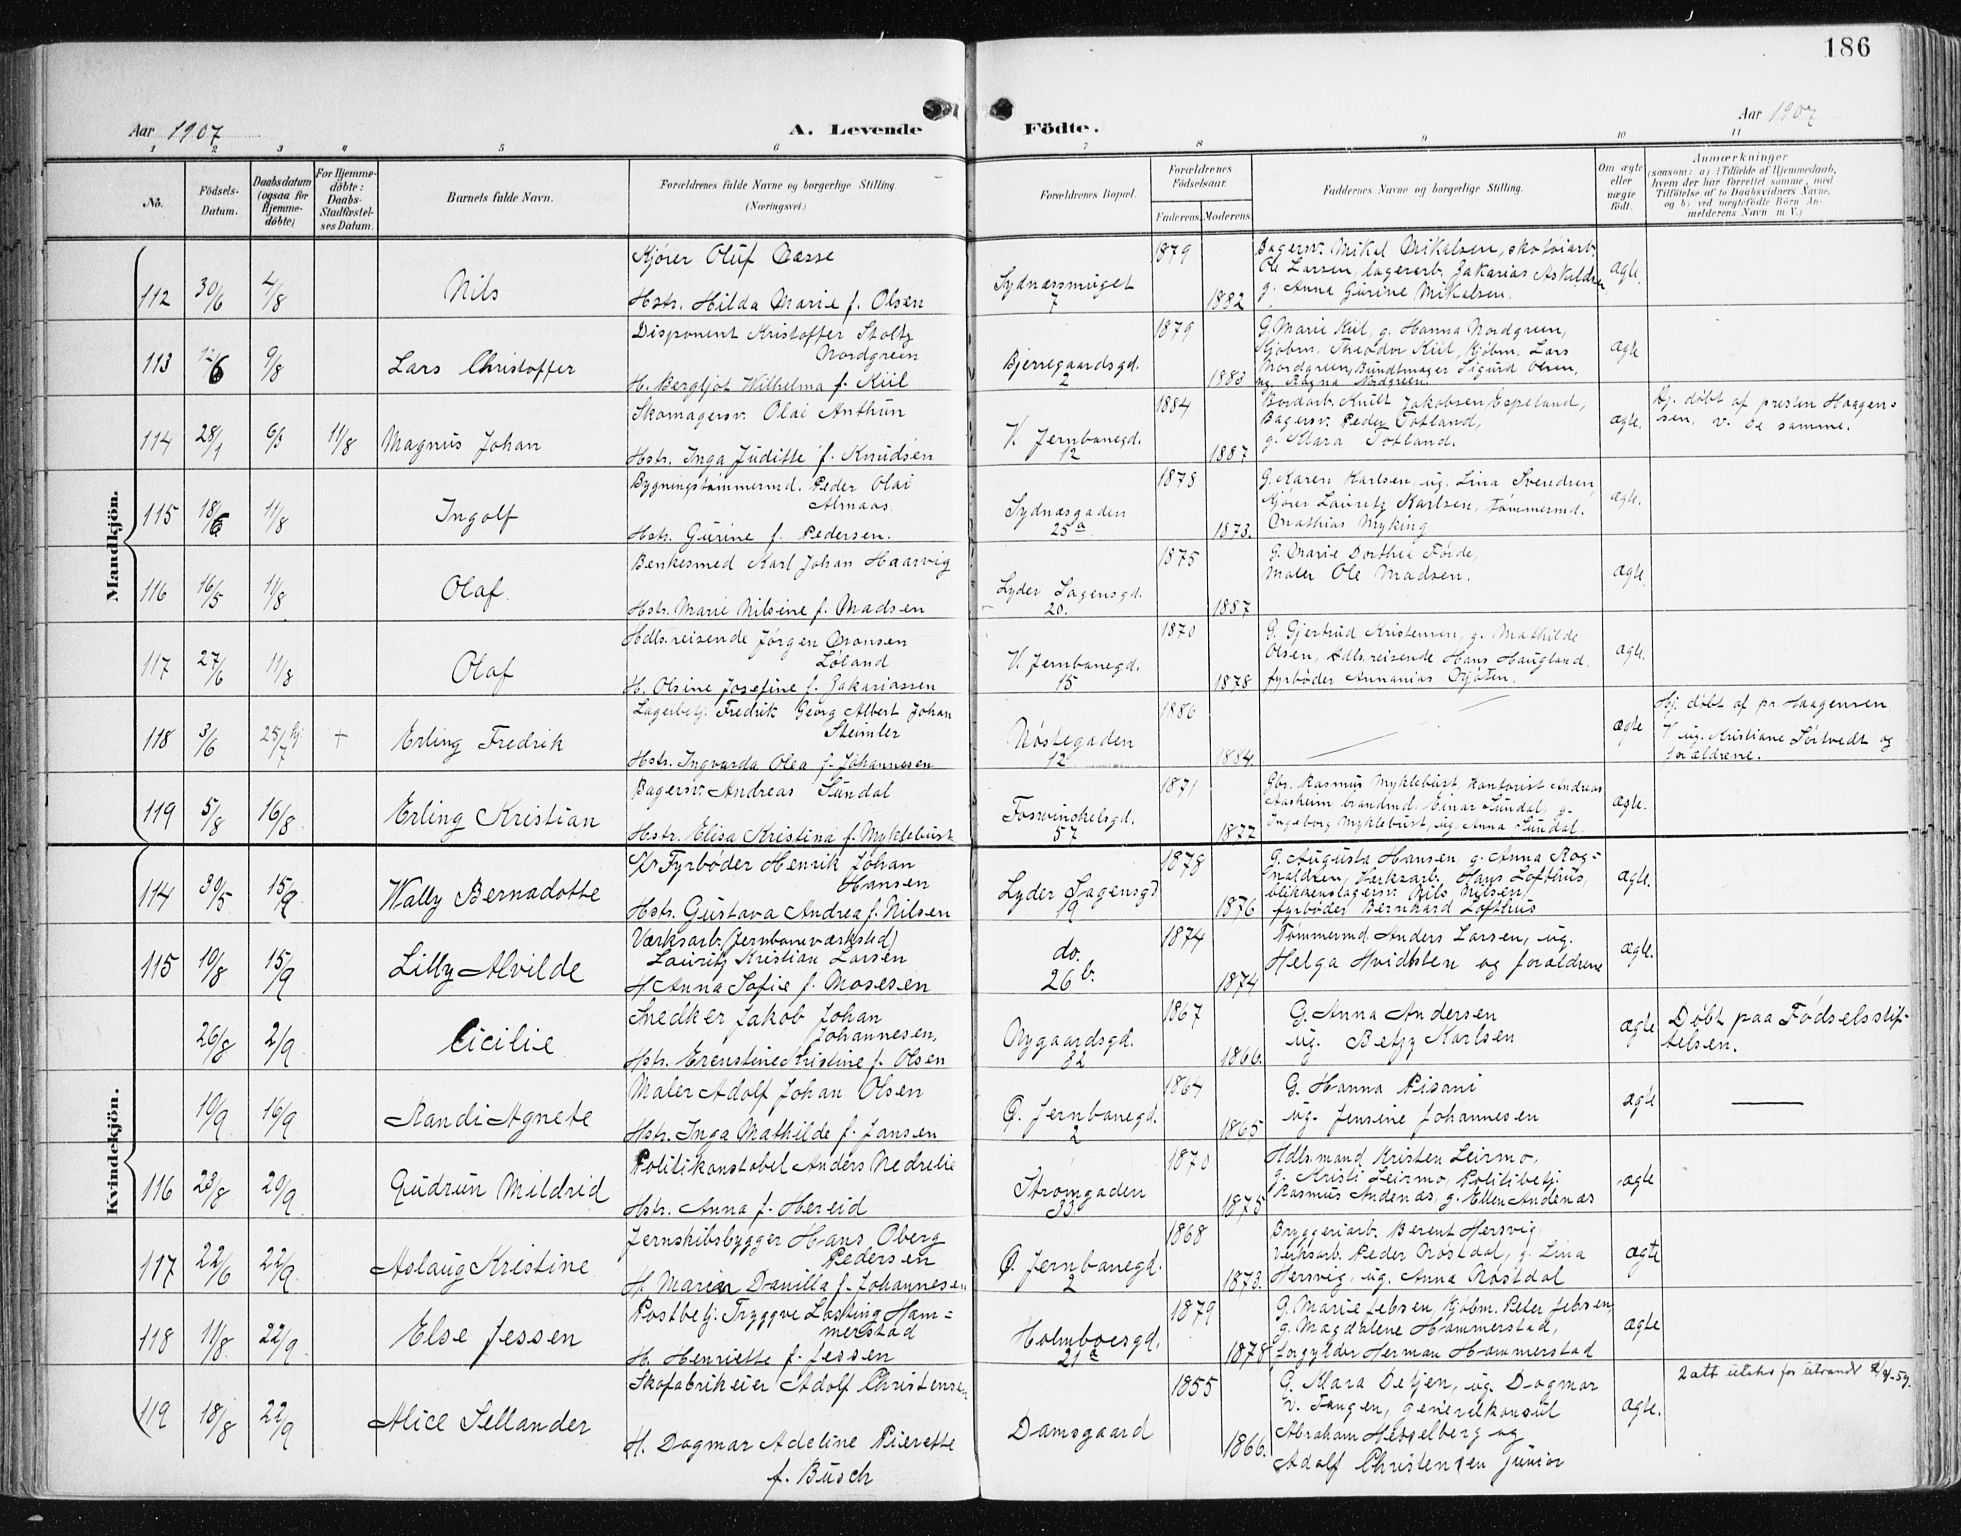 186
Aar 1907
A. Levende Födte.
Aar 1907
1 2 3 4 5 6 7 8 9 10 11
No.
Födsels-
Datum.
Daabsdatum
(ogsaa for
Hjemme-
döbte)
For Hjemme-
döbte:
Daabs-
Stadfæstel-
ses Datum.
Barnets fulde Navn.
Forældrenes fulde Navne og borgerlige Stilling.
(Næringsvei.)
Forældrenes Bopæl.
Forældrenes
Födselsaar.
Faderens. Moderens.
Faddernes Navne og borgerlige Stilling.
Om ægte
eller
uægte
födt.
Anmærkninger
(saasom: a) i Tilfælde af Hjemmedaab,
hvem der har forrettet samme, med
Tilföielse af to Daabsvidners Navne,
og b) ved uægtefödte Börn An-
melderens Navn m. V.)
Mandkjön.
112 30/6 4/8 Nils
Kjører Oluf Næsse
Hstr. Hilda Marie f. Olsen
Sydnæssmuget
7
1879
1882
Bagersv. Mikal Mikalsen, skotøiarb.
Ole Larsen, lagerarb. Zakarias Askildsen
g. Anna Gurine Mikalsen.
ægte.
113 12/6 9/8 Lars Christoffer
Disponent Kristoffer Stoltz
Nordgreen
H. Bergljot Wilhelma f. Kiil
Bjerregaardsgd.
2
1879
1883
G. Marie Kiil, g. Hanna Nordgreen,
Kjøbm. Theodor Kiil, Kjøbm. Lars
Nordgreen, Bundtmager Sigurd
ug. Ragna Nordgreen.
ægte
114 28/1 6/3 11/8 Magnus Johan
Skomagersv. Olai Anthun
Hstr. Inga Juditte f. Knudsen
V. Jernbanegd.
12
1884
1887
Bordarb. Knut Jakobsen Espeland,
Bagersv. Peder Totland,
g. Klara Totland.
ægte.
Hj. døbt af presten Haagen-
sen. V. De samme.
115 18/6 11/8 Ingolf
Bygningstømmermd. Peder Olai
Almaas
Hstr. Gurine f. Pedersen.
Sydnæsgaden
25a
1878
1873.
G. Karen Karlsen, ug. Lina Svendsen
Kjører Lauritz Karlsen, Tømmermd.
Mathias Myking
ægte.
116 16/5 11/8 Olaf.
Benkesmed Karl Johan Haarvig
Hstr. Marie Nilsine f. Madsen
Lyder Sagensgd.
20.
1875
1887
G. Marie Dorthea Førde,
Maler Ole Madsen.
ægte.
117 27/6 11/8 Olaf
Hdls.reisende Jørgen Monsen
Løland
H. Olsine Josefine f. Zakariassen
V. Jernbanegd.
15
1870
1878
G. Gjertrud Kristensen, g. Mathilde
Olsen, Hdls.reisende Hans Haugland,
fyrbøder Annanias
ægte.
118 3/6 25/7 hj. + Erling Fredrik
Lagerbetj. Fredrik Georg Albert Johan
Steimler
Hstr. Ingvarda Olea f. Johannesen
Nøstegaden
12
1886
1884.
ægte
Hj. døbt af pr. Haagensen
V. ug. Kristiane Sørtvedt og
forældrene.
119 5/8 16/8 Erling Kristian
Bagersv. Andreas Sundal
Hstr. Elisa Kristina f. Myklebust
Fosswinckelsgd.
57
1871
1877
Gbr. Rasmus Myklebust Kontorist Andreas
Aasheim brandmd. Einar Sundal, g.
Ingeborg Myklebust, ug. Anna Sundal.
ægte.
Kvindekjön.
114 30/5 15/9 Wally Bernadotte
Fyrbøder Henrik Johan
Hansen
Hstr. Gustava Andrea f. Nilsen
Lyder Sagensgd
19
1878
1876
G. Augusta Hansen, g. Anna Rog-
naldsen, Værksarb. Hans Lofthus,
blikkenslagersv. Nils Nilsen,
fyrbøder Bernhard Lofthus
ægte.
115 10/8 15/9 Lilly Alvilde
Værksarb. (Jernbaneværksted)
Lauritz Kristian Larsen
H. Anna Sofie f. Mosesen
do.
26 b.
1874
1874
Tømmermd. Anders Larsen, ug.
Helga Hvidsten og forældrene
ægte.
26/8 2/9 Cicilie
Snedker Jakob Johan
Johannesen,
Hstr. Erenstine Kristine f. Olsen
Nygaardsgd.
82
1867
1866.
G. Anna Andersen
ug. Betzy Karlsen
ægte
Døbt paa Fødselsstif-
telsen.
10/9 16/9 Randi Agnete
Maler Adolf Johan Olsen
Hstr. Inga Mathilde f. Jansen
Ø. Jernbanegd.
2
1864
1865
G. Hanna Pisani
ug. Jensine Johannesen
ægte
116 23/8 20/9 Gudrun Mildrid
Politikonstabel Anders Nedrelie
Hstr. Anna f. Hereid
Strømgaden
33.
1870
1875
Hdls.mand Kristen Leirmo,
g. Kristi Leirmo, Politibetj.
Rasmus Andenæs, g. Ellen Andenæs
ægte
117 22/6 22/9 Aslaug Kristine
Jernskibsbygger Hans Oberg
Pedersen
H. Marien Danilla f. Johannesen
Ø. Jernbanegd.
2
1868
1873.
Bryggeriarb. Berent Hersvig,
Verksarb. Peder Nøstdal, g. Lina
Hersvig, ug. Anna Nøstdal
ægte
118 11/8 22/9 Else Jessen
Postbetj. Tryggve Lasting Ham-
merstad
H. Henriette f. Jessen
Holmboesgd.
21a
1879
1878
G. Marie Jebsen, Kjøbm. Peter Jebsen,
g. Magdalene Hammerstad,
forgylder Herman Hammerstad
ægte
119 18/8 22/9 Alice Sellander
Skofabrikeier Adolf Christensen
H. Dagmar Adeline Pierette
f. Busch
Damsgaard
1855
1866.
G. Klara Detjen, ug. Dagmar
v. Tangen, generalkonsul
Abraham Hesselberg og
Adolf Christensen junior
ægte.
2 att utstes for utvandr